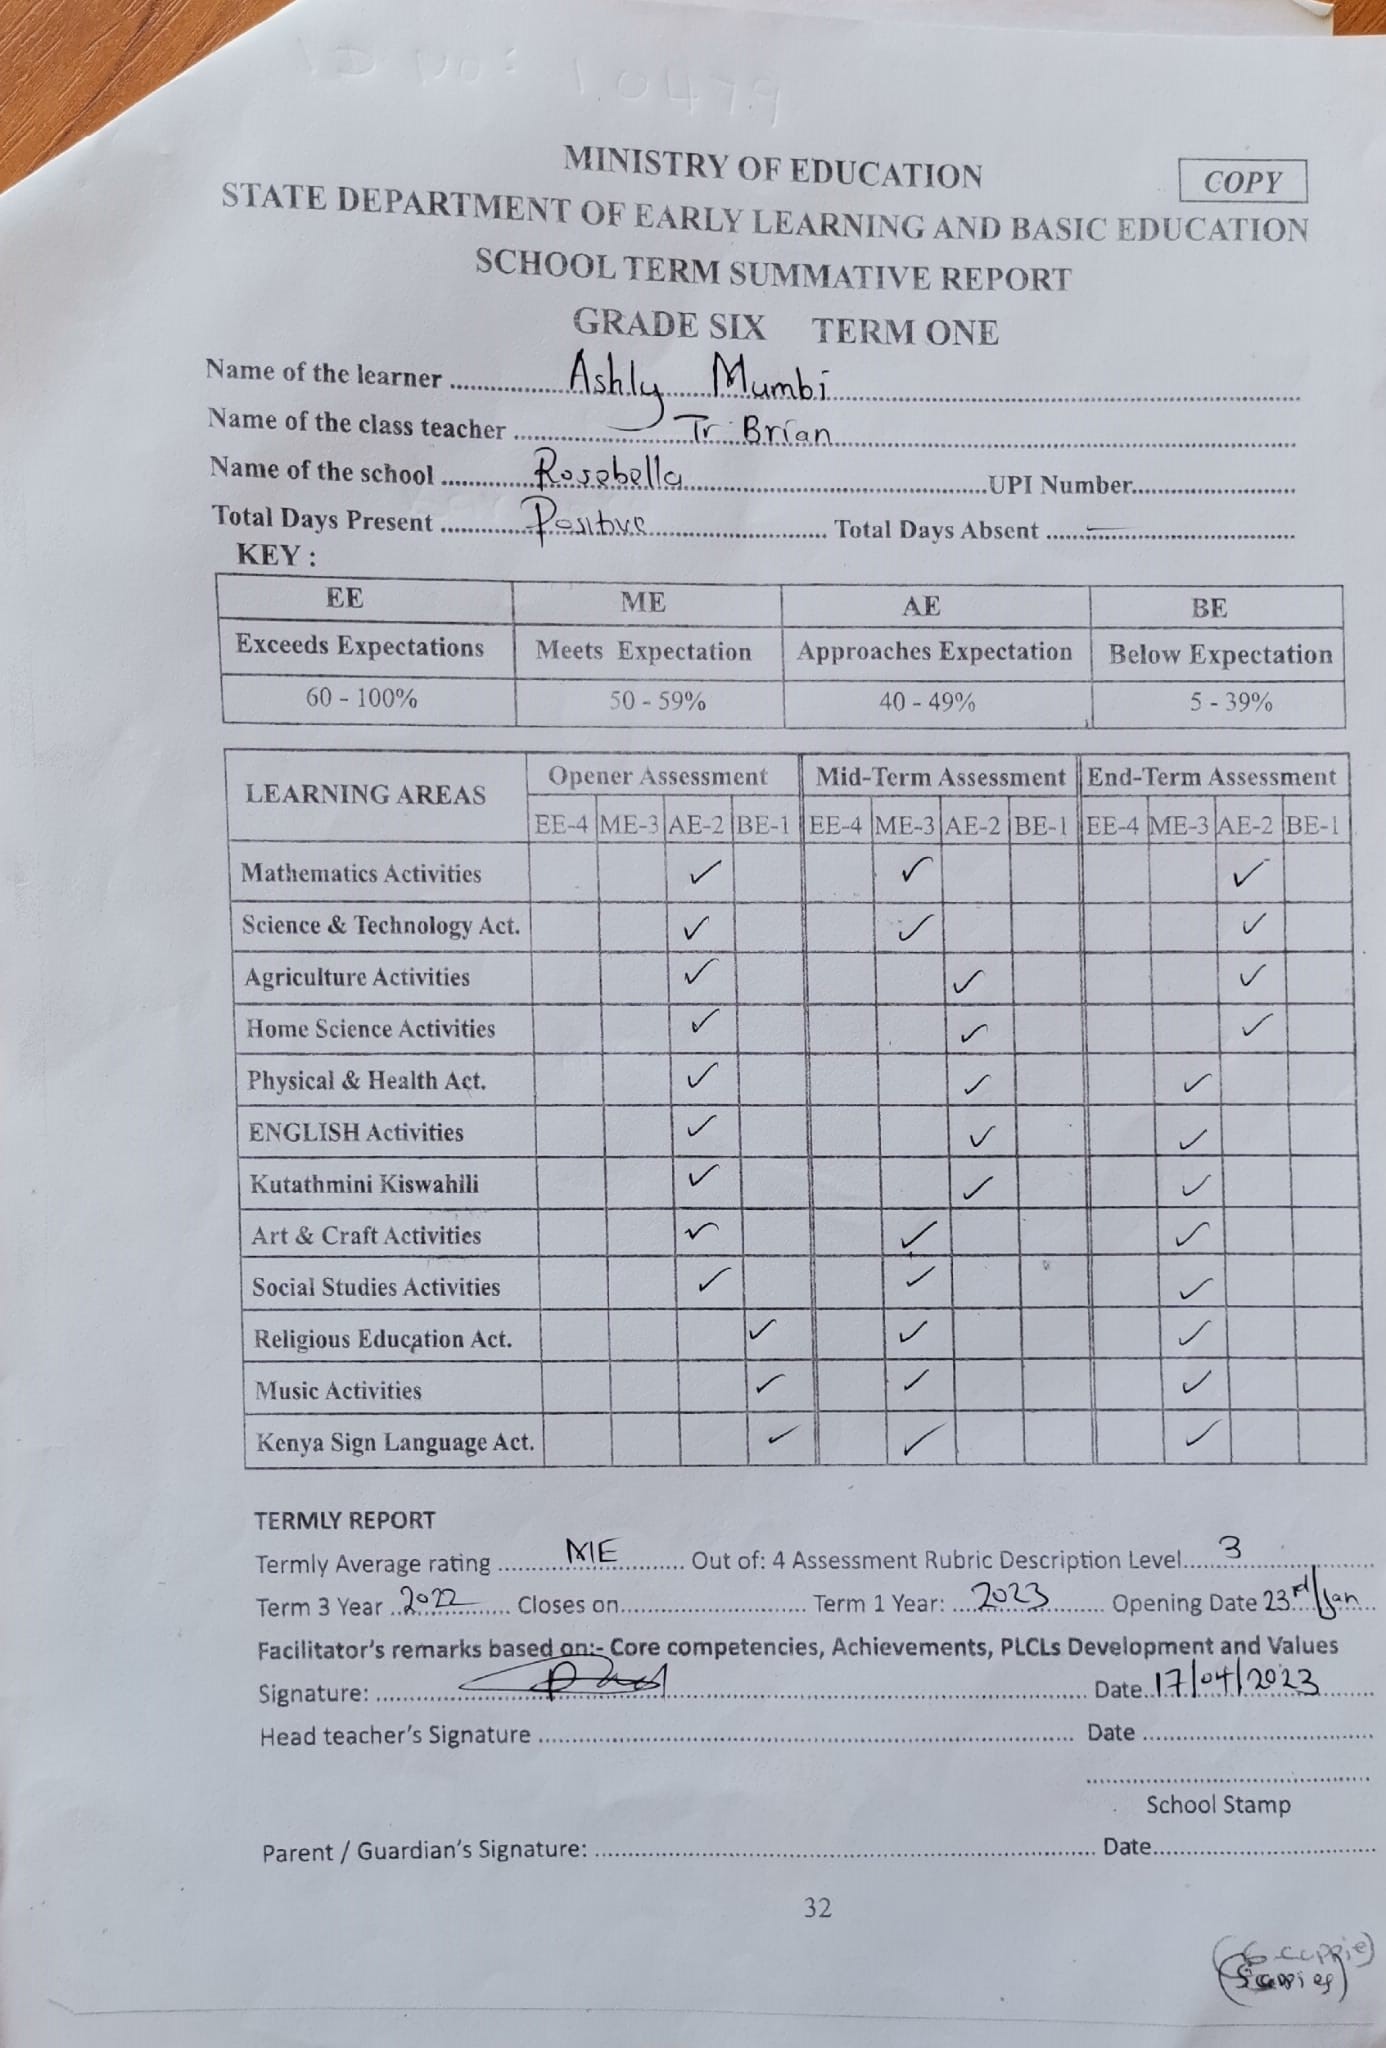 MINISTRY OF EDUCATION
COPY
STATE DEPARTMENT OF EARLY LEARNING AND BASIC EDUCATION
SCHOOL TERM SUMMATIVE REPORT
GRADE SIX TERM ONE
Name of the learner Ashly Mumbi
Name of the class teacher Tr. Brian
Name of the school Rosebella UPI Number
Total Days Present Positive Total Days Absent —
KEY :
EE ME AE BE
Exceeds Expectations Meets Expectation Approaches Expectation Below Expectation
60 - 100% 50 - 59% 40 - 49% 5 - 39%
LEARNING AREAS Opener Assessment Mid-Term Assessment End-Term Assessment
EE-4 ME-3 AE-2 BE-1 EE-4 ME-3 AE-2 BE-1 EE-4 ME-3 AE-2 BE-1
Mathematics Activities ✓ ✓ ✓
Science & Technology Act. ✓ ✓ ✓
Agriculture Activities ✓ ✓ ✓
Home Science Activities ✓ ✓ ✓
Physical & Health Act. ✓ ✓ ✓
ENGLISH Activities ✓ ✓ ✓
Kutathmini Kiswahili ✓ ✓ ✓
Art & Craft Activities ✓ ✓ ✓
Social Studies Activities ✓ ✓ ✓
Religious Education Act. ✓ ✓ ✓
Music Activities ✓ ✓ ✓
Kenya Sign Language Act. ✓ ✓ ✓
TERMLY REPORT
Termly Average rating ME Out of: 4 Assessment Rubric Description Level 3
Term 3 Year 2022 Closes on Term 1 Year: 2023 Opening Date 23rd/Jan
Facilitator's remarks based on:- Core competencies, Achievements, PLCLs Development and Values
Signature: Date 17/04/2023
Head teacher's Signature Date
School Stamp
Parent / Guardian's Signature: Date
32